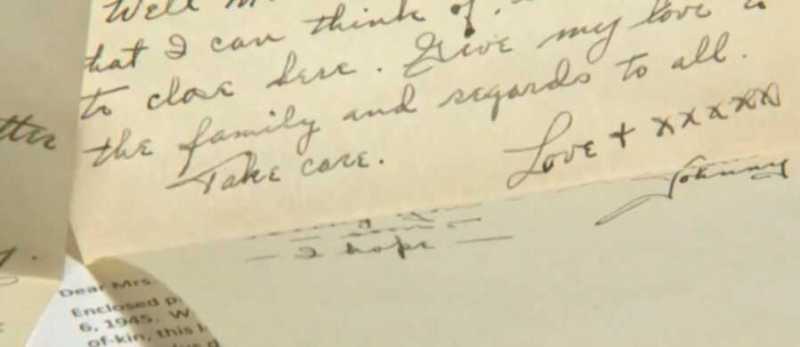 Well
that I can think of.
to close here. Give my love to
the family and regards to all.
Take care.
Love + xxxxx
Johnny
I hope
Dear Mrs.
Enclosed
6, 1945. W
of-kin, this